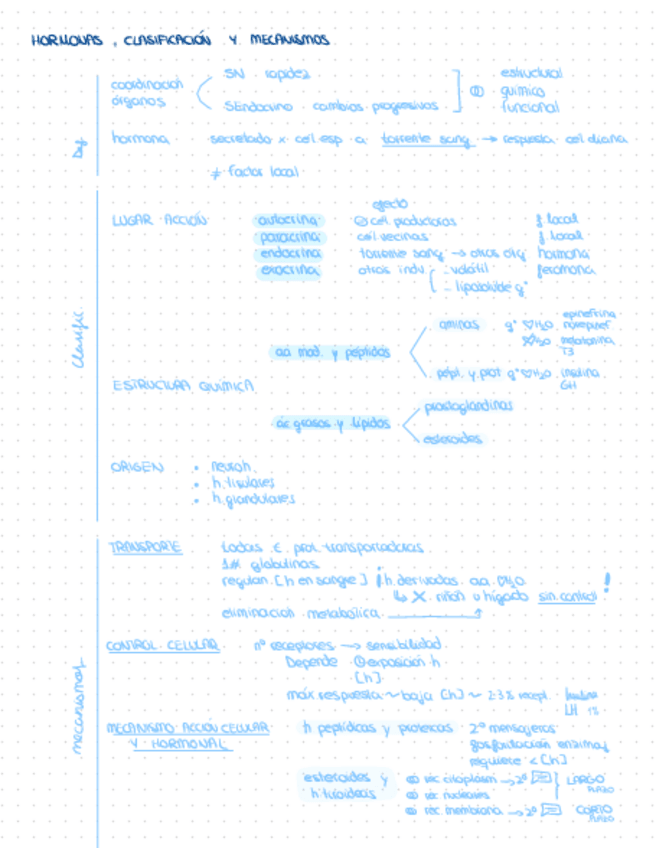 HORMONAS, CLASIFICACIÓN Y MECANISMOS
Def
coordinación órganos
SN rapidez
SEndocrino cambios progresivos
estructural
químico
funcional
hormona secretado x cél esp a torrente sang → respuesta cél diana
≠ factor local
Clasific.
efecto
LUGAR ACCIÓN autocrina cél productoras f local
paracrina cél vecinas f local
endocrina torrente sang → otros órg hormona
exocrina otros indv - volátil feromona
- liposoluble
aa mod. y péptidos
aminas H2O epinefrina
norepinef
H2O melatonina
T3
pépt. y prot H2O insulina
GH
ESTRUCTURA QUÍMICA
ác grasos y lípidos
prostaglandinas
esteroides
ORIGEN • neuroh.
• h. tisulares
• h. glandulares
mecanismos
TRANSPORTE todas c prot transportadoras
globulinas
regulan [h en sangre] ¡h derivadas aa H2O
↳ X riñón o hígado sin control!
eliminación metabólica
CONTROL CELULAR nº receptores → sensibilidad
Depende exposición h
[h]
máx respuesta ~ baja [h] ~ 2-3% recept. Insulina
LH 1%
MECANISMO ACCIÓN CELULAR Y HORMONAL
h peptídicas y proteicas 2º mensajeros
fosforilación enzimas
requiere < [h]
esteroides y h tiroideas
rec citoplasm → 2º
rec nucleares
LARGO PLAZO
rec membrana → 2º CORTO PLAZO